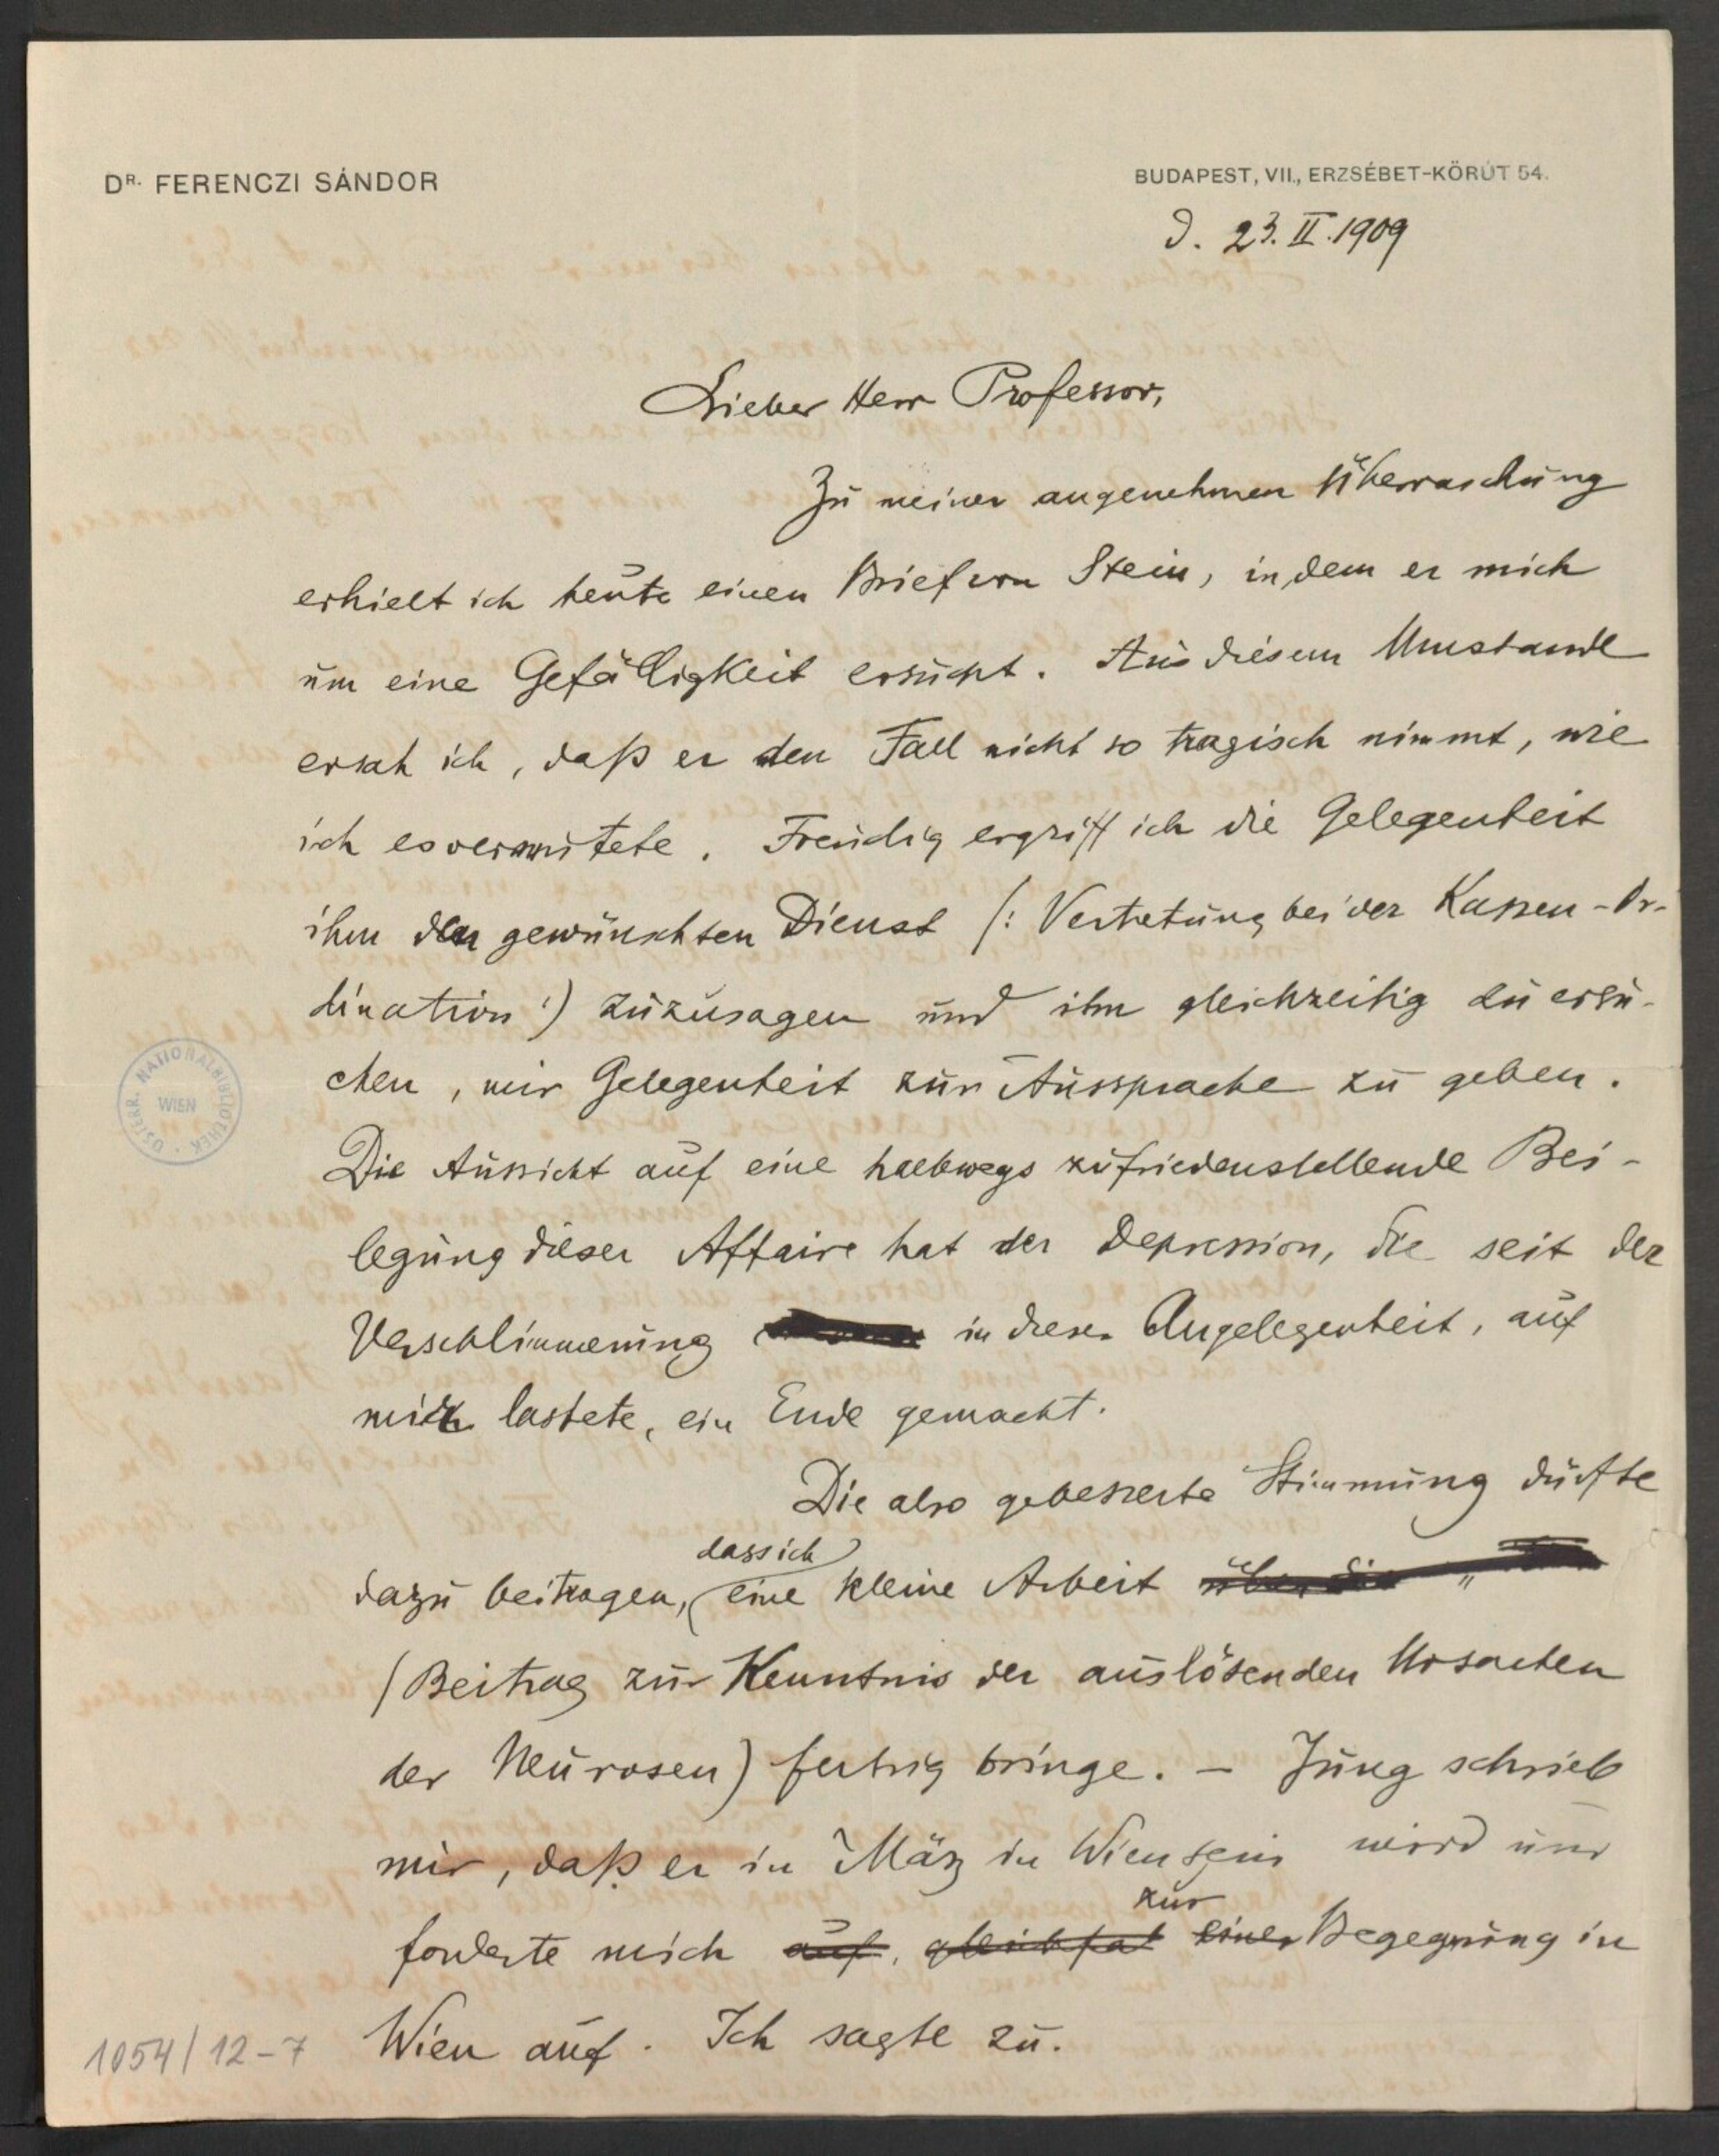 DR. FERENCZI SÁNDOR
BUDAPEST, VII., ERZSÉBET-KÖRÚT 54.
d. 23. II. 1909
Lieber Herr Professor,
Zu meiner angenehmen Überraschung
erhielt ich heute einen Brief von Stein, in dem er mich
um eine Gefälligkeit ersucht. Aus diesem Umstande
ersah ich, daß er den Fall nicht so tragisch nimmt, wie
ich es vermutete. Freudig ergriff ich die Gelegenheit
ihm den gewünschten Dienst (: Vertretung bei der Kassen-Or-
dination :) zuzusagen und ihn gleichzeitig zu ersu-
chen, mir Gelegenheit zur Aussprache zu geben.
Die Aussicht auf eine halbwegs zufriedenstellende Bei-
legung dieser Affaire hat der Depression, die seit der
Verschlimmerung in dieser Angelegenheit, auf
mir lastete, ein Ende gemacht.
Die also gebesserte Stimmung dürfte
dass ich
dazu beitragen, eine kleine Arbeit über die
(Beitrag zur Kenntnis der auslösenden Ursachen
der Neurosen) fertig bringe. – Jung schrieb
mir, daß er in März in Wien sein wird und
zur
forderte mich auf, gleichfal einer Begegnung in
Wien auf. Ich sagte zu.
1054/12-7
ÖSTERR. NATIONALBIBLIOTHEK
WIEN